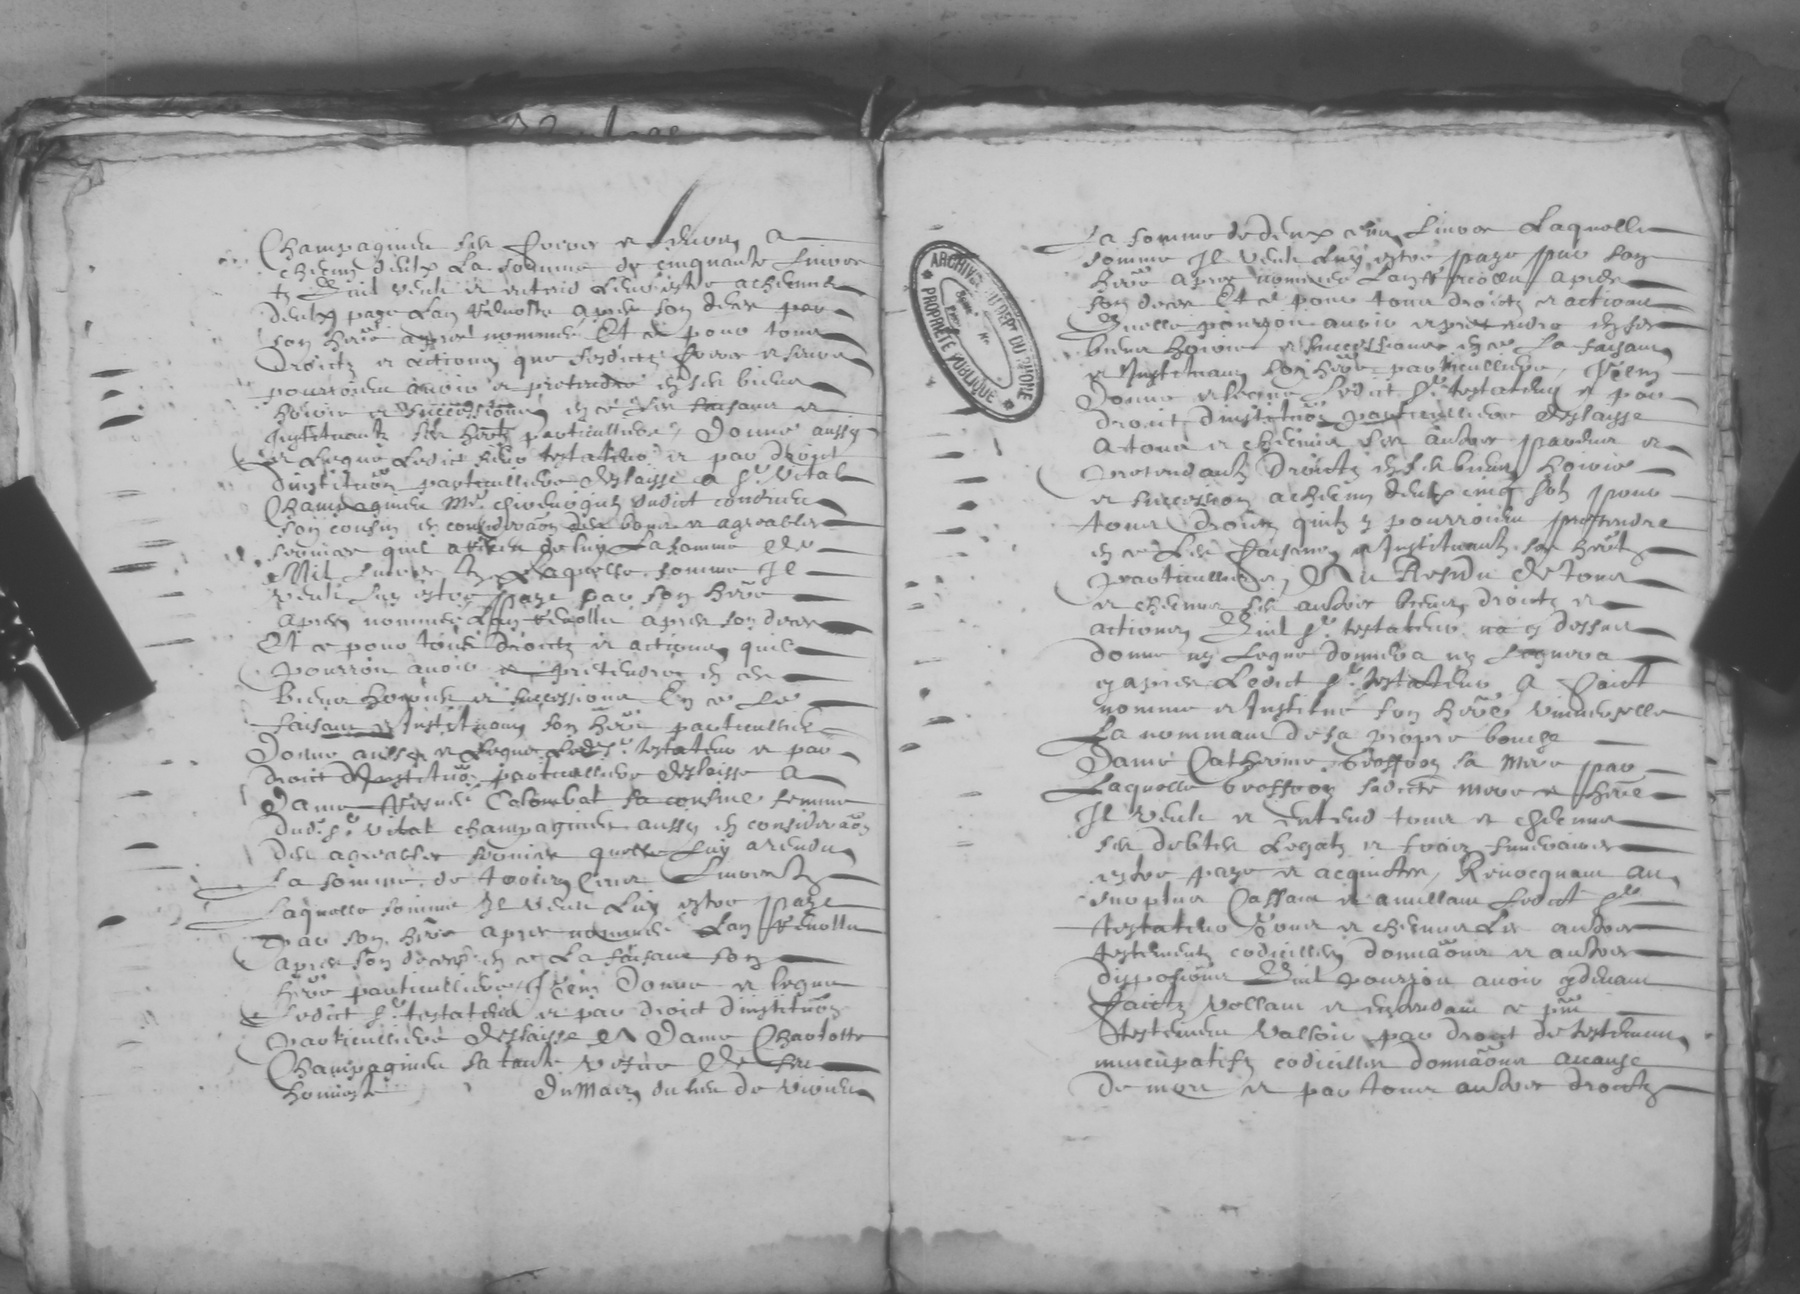 Champagnieu ses soeurs et
chacun d'eulx La somme de cinquante Livres
tz quil veult et entend Leur estre a chacune
deulx paye Lan revolu apres son deces par
son heritier apres nommé Et ce pour tous
droictz et actions que sesdictes soeurs
pourroient avoir et pretendre en ses biens
hoirie et successions en ce les faisant et
Instituantz ses heritiers particulliers, Donne aussy
et Legue Ledict sieur testateur et par droict
dinstitution particulliere delaisse a Sr Vital
Champagnieu Me chirurgien dudict Condrieu
son cousin en consideraon des bons et agreables
services quil a receu de luy La somme de
Mil Livres tz Laquelle somme Il
veult Luy estre paye par son heritier
apres nommé Lan revollu apres son deces
Et ce pour tous droictz et actions quil
pourroit avoir et pretendre en ses
biens hoirie et successions En ce Le
faisant et Instituant son heritier particullier
Donne aussy et Legue Ledict Sr testateur et par
droict d'Institution particulliere delaisse a
Dame Colombat sa cousine femme
dudt Sr Vital Champagnieu aussy en consideraon
des agreables services quelle Luy a rendu
La somme de trois cens Livres tz
Laquelle somme Il veult Luy estre paye
par son heritier apres nommé Lan revollu
apres son deces en ce La faisant son
heritiere particulliere, Item Donne et legue
Ledict Sr testateur et par droict dinstitution
particulliere delaisse A Dame Charlotte
Champagnieu sa tante vefve de feu
honneste Du Mas du lieu de
ARCHIVES DU DEPT DU RHONE
PROPRIETE PUBLIQUE
La somme de deux cens Livres Laquelle
somme Il veult Luy estre paye par son
heritier apres nommé Lan revollu apres
son deces Et ce pour tous droictz et actions
Quelle pourroit avoir et pretendre en ses
biens hoirie et successions en ce La faisant
et Instituant son heritiere particulliere, Item
Donne et legue Ledict Sr testateur et par
droict dinstitution particulliere delaisse
A tous et chacuns ses aultres parens et
pretendantz droictz en ses biens hoirie
et succession a chacun deulx cinq solz pour
tous droictz quilz y pourroient pretendre
en ce Les faisant et Instituantz ses heritiers
particulliers, Au Residu de tous
et chacuns ses aultres biens droictz et
actions Quil Sr testateur na cy dessus
donne ny Legue donnera ny Leguera
cy apres Ledict Sr testateur A faict
nomme et Institue son heritiere universelle
La nommant de sa propre bouche
Dame Catherine sa mere par
Laquelle sadicte mere et heritiere
Il veult et entend tous et chacuns
ses debtes Legatz et frais funeraires
estre paye et acquictes, Revocquant au
surplus Cassant et anullant Ledict Sr
testateur Tous et chacuns Les aultres
testementz codicilles donnaons et aultres
dispositions Quil pourroit avoir cy devant
faictz Vollant et entendant ce pnt
testement Valloir par droict de testement
nuncupatif codicilles donnaons a cause
de mort et par tous aultres droictz